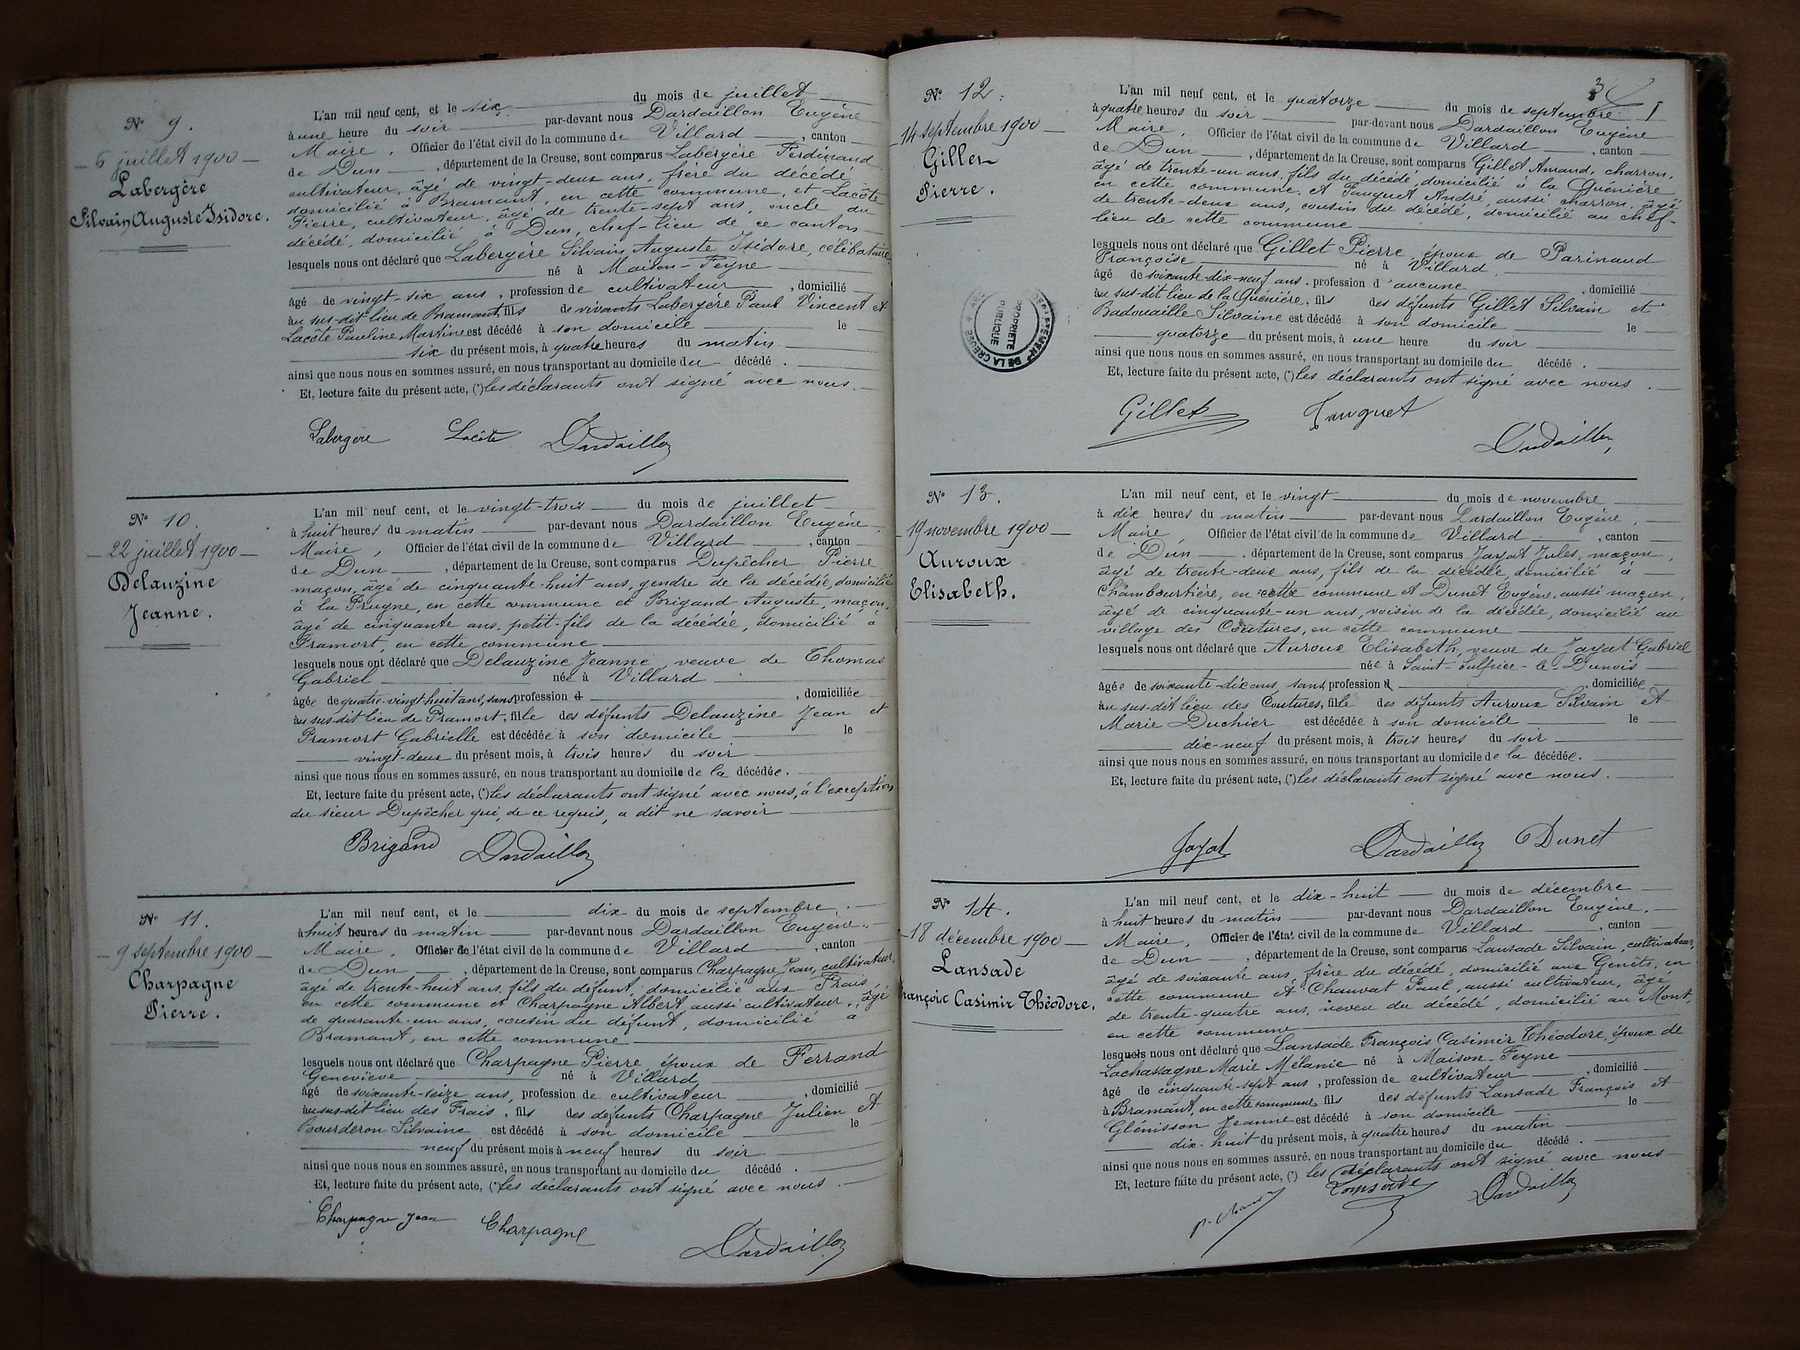 N° 9.
6 juillet 1900
Labergère
Silvain Auguste Isidore.
L'an mil neuf cent, et le six du mois de juillet
à une heure du soir par-devant nous Dardaillon Eugène
Maire, Officier de l'état civil de la commune de Villard, canton
de Dun, département de la Creuse, sont comparus Labergère Ferdinand
cultivateur, âgé de vingt-deux ans, frère du décédé
domicilié à Bramant, en cette commune, et Lacôte
Pierre, cultivateur, âgé de trente-sept ans, oncle du
décédé, domicilié à Dun, chef-lieu de ce canton
lesquels nous ont déclaré que Labergère Silvain Auguste Isidore, célibataire
né à Maison-Feyne
âgé de vingt-six ans, profession de cultivateur, domicilié
au sus-dit lieu de Bramant, fils de vivants Labergère Paul Vincent et
Lacôte Pauline Martine est décédé à son domicile le
six du présent mois, à quatre heures du matin
ainsi que nous nous en sommes assuré, en nous transportant au domicile du décédé.
Et, lecture faite du présent acte, (*) les déclarants ont signé avec nous.
Labergère Lacôte Dardaillon
N° 10.
22 juillet 1900
Delauzine
Jeanne.
L'an mil neuf cent, et le vingt-trois du mois de juillet
à huit heures du matin par-devant nous Dardaillon Eugène,
Maire, Officier de l'état civil de la commune de Villard, canton
de Dun, département de la Creuse, sont comparus Dupêcher Pierre
maçon, âgé de cinquante-huit ans, gendre de la décédée, domicilié
à la Prugne, en cette commune et Brigand Auguste, maçon,
âgé de cinquante ans, petit-fils de la décédée, domicilié à
Pramort, en cette commune
lesquels nous ont déclaré que Delauzine Jeanne, veuve de Thomas
Gabriel née à Villard
âgée de quatre-vingt-huit ans, sans profession d, domiciliée
au sus-dit lieu de Pramort, fille des défunts Delauzine Jean et
Pramort Gabrielle est décédée à son domicile le
vingt-deux du présent mois, à trois heures du soir
ainsi que nous nous en sommes assuré, en nous transportant au domicile de la décédée.
Et, lecture faite du présent acte, (*) les déclarants ont signé avec nous, à l'exception
du sieur Dupêcher qui, de ce requis, a dit ne savoir
Brigand Dardaillon
N° 11.
9 septembre 1900
Charpagne
Pierre.
L'an mil neuf cent, et le dix du mois de septembre
à huit heures du matin par-devant nous Dardaillon Eugène
Maire, Officier de l'état civil de la commune de Villard, canton
de Dun, département de la Creuse, sont comparus Charpagne Jean, cultivateur,
âgé de trente-huit ans, fils du défunt, domicilié aux Frais
en cette commune et Charpagne Albert, aussi cultivateur, âgé
de quarante-un ans, cousin du défunt, domicilié à
Bramant, en cette commune
lesquels nous ont déclaré que Charpagne Pierre époux de Ferrand
Geneviève né à Villard
âgé de soixante-seize ans, profession de cultivateur, domicilié
au sus-dit lieu des Frais, fils des défunts Charpagne Julien et
Bourderon Silvaine est décédé à son domicile le
neuf du présent mois à neuf heures du soir
ainsi que nous nous en sommes assuré, en nous transportant au domicile du décédé.
Et, lecture faite du présent acte, (*) les déclarants ont signé avec nous
Charpagne Jean Charpagne
Dardaillon
3
N° 12.
14 septembre 1900
Gillet
Pierre.
L'an mil neuf cent, et le quatorze du mois de septembre
à quatre heures du soir par-devant nous Dardaillon Eugène
Maire, Officier de l'état civil de la commune de Villard, canton
de Dun, département de la Creuse, sont comparus Gillet Amand, charron,
âgé de trente-un ans, fils du décédé, domicilié à la Quénière
en cette commune, et Fauquet André, aussi charron, âgé
de trente-deux ans, cousin du décédé, domicilié au chef-
lieu de cette commune
lesquels nous ont déclaré que Gillet Pierre, époux de Parinaud
Françoise né à Villard
âgé de soixante-dix-neuf ans, profession d'aucune, domicilié
au sus-dit lieu de la Quénière, fils des défunts Gillet Silvain et
Radouaille Silvaine est décédé à son domicile le
quatorze du présent mois, à une heure du soir
ainsi que nous nous en sommes assuré, en nous transportant au domicile du décédé.
Et, lecture faite du présent acte, (*) les déclarants ont signé avec nous.
DE LA CREUSE
PROPRIÉTÉ
PUBLIQUE
Gillet Fauquet
Dardaillon
N° 13.
19 novembre 1900
Auroux
Elisabeth.
L'an mil neuf cent, et le vingt du mois de novembre
à dix heures du matin par-devant nous Dardaillon Eugène,
Maire, Officier de l'état civil de la commune de Villard, canton
de Dun, département de la Creuse, sont comparus Jayat Jules, maçon,
âgé de trente-deux ans, fils de la décédée, domicilié à
Chambourtière, en cette commune et Dunet Eugène, aussi maçon,
âgé de cinquante-un ans, voisin de la décédée, domicilié au
village des Coutures, en cette commune
lesquels nous ont déclaré que Auroux Elisabeth, veuve de Jayat Gabriel
née à Saint-Sulpice-le-Dunois
âgée de soixante-dix ans, sans profession d, domiciliée
au sus-dit lieu des Coutures, fille des défunts Auroux Silvain et
Marie Duchier est décédée à son domicile le
dix-neuf du présent mois, à trois heures du soir
ainsi que nous nous en sommes assuré, en nous transportant au domicile de la décédée.
Et, lecture faite du présent acte, (*) les déclarants ont signé avec nous.
Jayat Dardaillon Dunet
N° 14.
18 décembre 1900
Lansade
François Casimir Théodore.
L'an mil neuf cent, et le dix-huit du mois de décembre
à huit heures du matin par-devant nous Dardaillon Eugène,
Maire, Officier de l'état civil de la commune de Villard, canton
de Dun, département de la Creuse, sont comparus Lansade Silvain, cultivateur,
âgé de soixante ans, frère du décédé, domicilié aux Genêts, en
cette commune et Chauvat Paul, aussi cultivateur, âgé
de trente-quatre ans, neveu du décédé, domicilié au Mont,
en cette commune
lesquels nous ont déclaré que Lansade François Casimir Théodore, époux de
Lachassagne Marie Mélanie né à Maison-Feyne
âgé de cinquante-sept ans, profession de cultivateur, domicilié
à Bramant, en cette commune, fils des défunts Lansade François et
Glénisson Jeanne est décédé à son domicile le
dix-huit du présent mois, à quatre heures du matin
ainsi que nous nous en sommes assuré, en nous transportant au domicile du décédé.
Et, lecture faite du présent acte, (*) les déclarants ont signé avec nous
Lansade Dardaillon